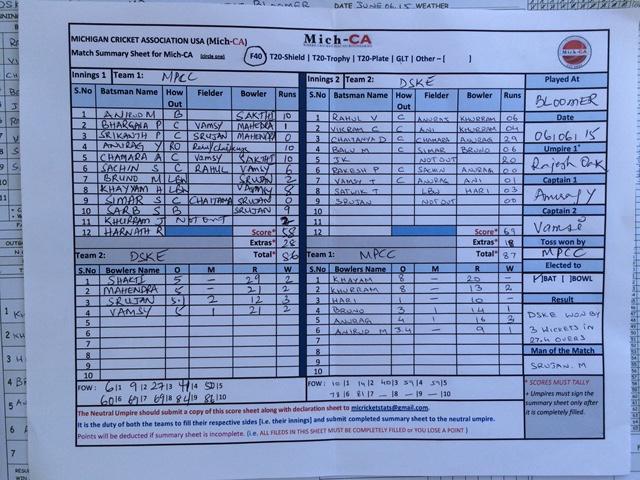 BLOOMER DATE JUNE 06.15 WEATHER
MICHIGAN CRICKET ASSOCIATION USA (Mich-CA) Mich-CA
Match Summary Sheet for Mich-CA (circle one) F40 | T20-Shield | T20-Trophy | T20-Plate | GLT | Other – [ ]
Innings 1 Team 1: MPCC
S.No Batsman Name How Out Fielder Bowler Runs
1 ANIRUD M B SAKTHI 10
2 BHARGAVA P C VAMSY MAHENDRA 1
3 SRIKANTH P C SRUJAN MAHENDRA 0
4 ANURAG Y RO 10
5 CHAMARA A C VAMSY SAKTHI 10
6 SACHIN S C RAHUL VAMSY 6
7 BRUNO M LBW SRUJAN 2
8 KHAYYAM H LBW VAMSY 8
9 SIMAR S C CHAITANYA SRUJAN 0
10 SARB S B SRUJAN 9
11 KHURRAM J NOT OUT 2
12 HARNATH R Score* 58
Extras* 28
Total* 86
Team 2: DSKE
S.No Bowlers Name O M R W
1 SHAKTI 5 – 29 2
2 MAHENDRA 5 – 21 2
3 SRUJAN 5.1 2 12 3
4 VAMSY 5 1 21 2
5
6
7
8
9
10
FOW: 6|1 9|2 27|3 41|4 50|5
60|6 69|7 69|8 84|9 86|10
Innings 2 Team 2: DSKE
S.No Batsman Name How Out Fielder Bowler Runs
1 RAHUL V C ANURAG KHURRAM 06
2 VIKRAM C C ANI KHURRAM 04
3 CHAITANYA D C CHAMARA ANURAG 29
4 BALU M C SIMAR BRUNO 06
5 JK NOT OUT 20
6 RAKESH P C SACHIN ANURAG 00
7 VAMSY T C ANURAG ANI 01
8 SATWIK T LBW HARI 03
9 SRUJAN NOT OUT 00
10
11
12 Score* 69
Extras* 18
Total* 87
Team 1: MPCC
S.No Bowlers Name O M R W
1 KHAYAM 8 – 20 –
2 KHURRAM 8 – 13 2
3 HARI 1 – 10 –
4 BRUNO 3 1 14 1
5 ANURAG 4 1 16 3
6 ANIRUD M 3.4 – 9 1
7
8
9
10
FOW: 10|1 14|2 40|3 59|4 59|5
73|6 81|7 –|8 –|9 –|10
Played At
BLOOMER
Date
06|06|15
Umpire 1*
Rajesh
Captain 1
Anurag Y
Captain 2
Vamsi
Toss won by
MPCC
Elected to
BAT | BOWL
Result
DSKE WON BY
3 WICKETS IN
27.4 OVERS
Man of the Match
SRUJAN. M
* SCORES MUST TALLY
+ Umpires must sign the summary sheet only after it is completely filled.
The Neutral Umpire should submit a copy of this score sheet along with declaration sheet to micricketstats@gmail.com.
It is the duty of both the teams to fill their respective sides [i.e. their innings] and submit completed summary sheet to the neutral umpire.
Points will be deducted if summary sheet is incomplete. (i.e. ALL FILEDS IN THIS SHEET MUST BE COMPLETELY FILLED or YOU LOSE A POINT )